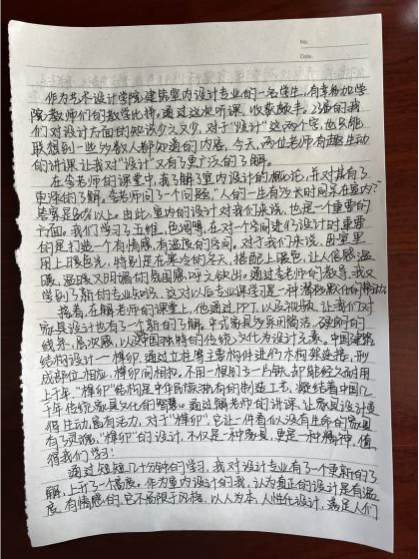 No.
Date.
作为艺术设计学院建筑室内设计专业的一名学生,有幸参加学
院教师们的教学比拼。通过这次听课,收获颇丰。23级的我
们对设计方面的知识少之又少,对于“设计”这两个字,也只能
联想到一些多数人都知道的内容。今天,两位老师有趣生动
的讲课让我对“设计”又有了更广泛的了解。
在李老师的课堂中,我了解了室内设计的概论,并对其有了
更深的了解。李老师问了一个问题,“人的一生有多大时间呆在室内?”
答案是80%以上。由此,室内的设计对我们来说,也是一个重要的
方面。我们学习了五性,色调等,在对一个空间进行设计时重要
的是打造一个有情感,有温度的空间。对于我们来说,卧室里
用上暖色光,特别是在寒冷的冬天,搭配上暖色,让人倍感温
暖,温暖又明漏的氛围感呼之欲出。通过李老师的教导,我又
学到了新的专业知识,这对以后专业课学习是一种潜移默化的
接着,在解老师的课堂上,他通过PPT,以及视频,让我们对
家具设计也有了一个新的了解。中式家具多采用简洁,硬朗的
线条,层次感,以中国独特的传统文化为设计元素。中国建筑
结构设计一榫卯,通过立柱等主要构件进行木构架连接,形
成部位相应,榫卯间相扣,不用一根钉子一片铁,却能经久耐用
上千年,“榫卯”结构是中华民族独有的制造工艺,凝结着中国几
千年传统家具文化的智慧。通过解老师的讲课,让家具设计变
得生动,富有活力,对于“榫卯”,它让一件看似没有生命的家具
有了灵魂,“榫卯”的设计,不仅是一种家具,更是一种精神,值
得我们学习!
通过短短几十分钟的学习,我对设计专业有了一个更新的了
解,上升了一个高度。作为室内设计的我,认为真正的设计是有温
度,有情感的,它不局限于风格,以人为本,人性化设计,满足人们